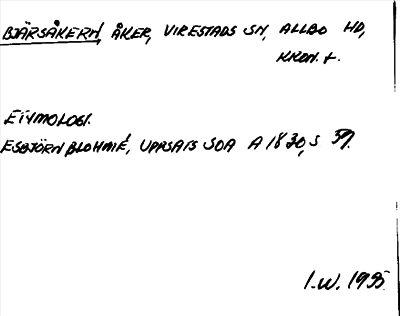 BJÄRSÅKERN, ÅKER, VIRESTADS SN, ALLBO HD,
KRON. +.
ETYMOLOGI.
ESBJÖRN BLOHMÉ, UPPSATS SOA A 1830, S 59.
I.W. 1995.